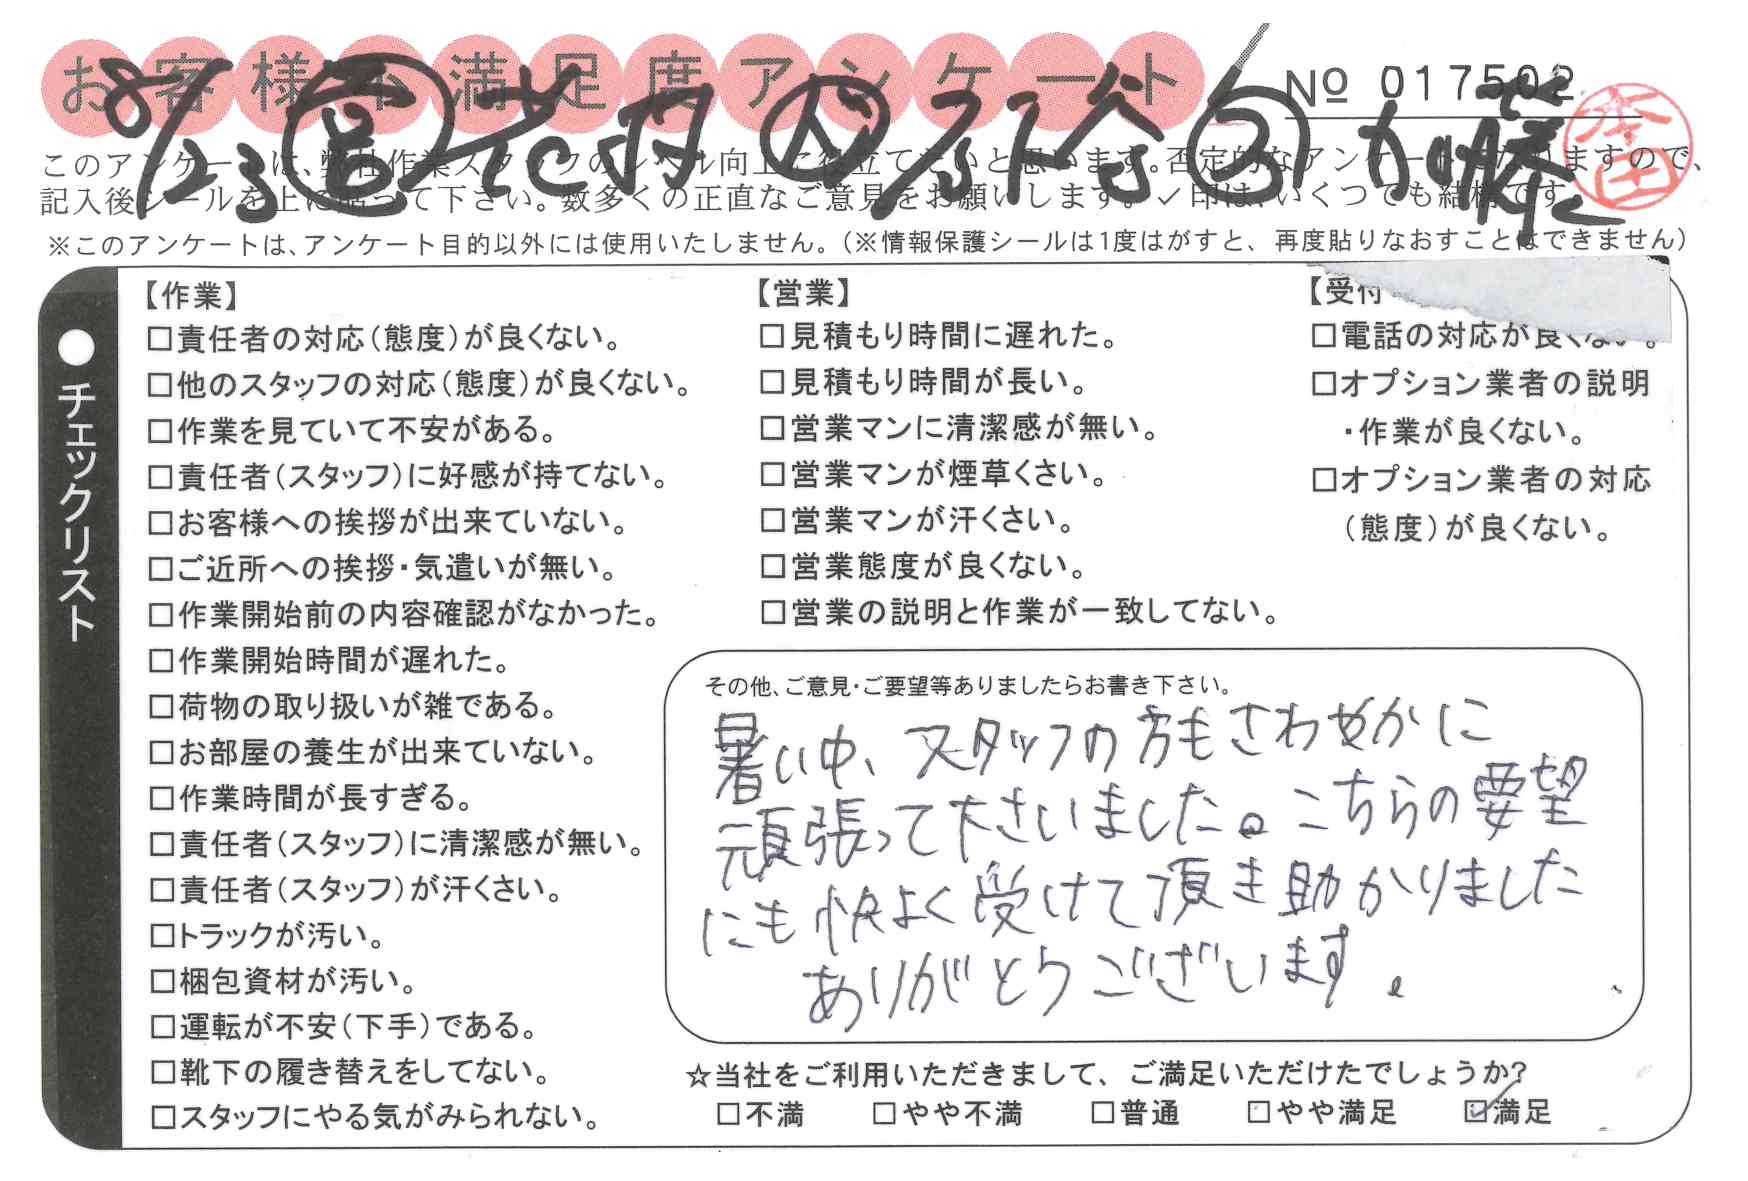 お客様不満足度アンケート
No 017502
8/23 営 花村 人 刈谷 コ 加藤
本田
このアンケートは、弊社作業スタッフのレベル向上に役立てたいと思います。否定的なアンケートとなりますので、
記入後シールを上に貼って下さい。数多くの正直なご意見をお願いします。✓印は、いくつでも結構です。
※このアンケートは、アンケート目的以外には使用いたしません。(※情報保護シールは1度はがすと、再度貼りなおすことはできません)
●チェックリスト
【作業】
□責任者の対応(態度)が良くない。
□他のスタッフの対応(態度)が良くない。
□作業を見ていて不安がある。
□責任者(スタッフ)に好感が持てない。
□お客様への挨拶が出来ていない。
□ご近所への挨拶・気遣いが無い。
□作業開始前の内容確認がなかった。
□作業開始時間が遅れた。
□荷物の取り扱いが雑である。
□お部屋の養生が出来ていない。
□作業時間が長すぎる。
□責任者(スタッフ)に清潔感が無い。
□責任者(スタッフ)が汗くさい。
□トラックが汚い。
□梱包資材が汚い。
□運転が不安(下手)である。
□靴下の履き替えをしてない。
□スタッフにやる気がみられない。
【営業】
□見積もり時間に遅れた。
□見積もり時間が長い。
□営業マンに清潔感が無い。
□営業マンが煙草くさい。
□営業マンが汗くさい。
□営業態度が良くない。
□営業の説明と作業が一致してない。
【受付
□電話の対応が良くない。
□オプション業者の説明
・作業が良くない。
□オプション業者の対応
(態度)が良くない。
その他、ご意見・ご要望等ありましたらお書き下さい。
暑い中、スタッフの方もさわやかに
頑張って下さいました。こちらの要望
にも快よく受けて頂き助かりました
ありがとうございます。
☆当社をご利用いただきまして、ご満足いただけたでしょうか?
□不満 □やや不満 □普通 □やや満足 ☑満足